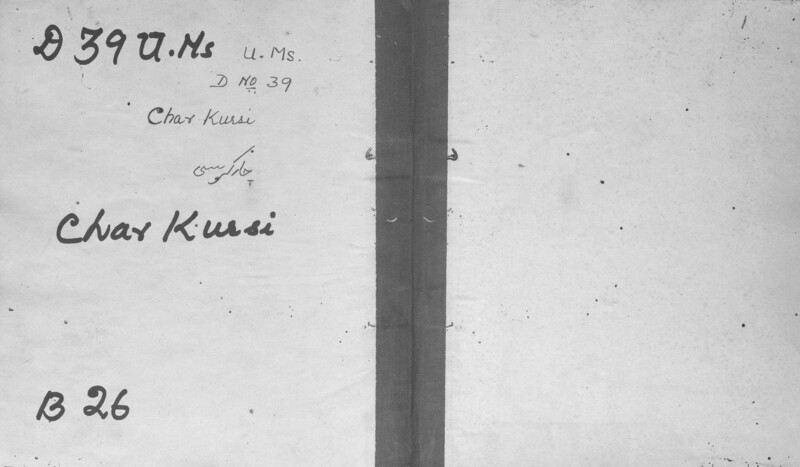 D 39 U.Ms U. Ms.
D No 39
Char Kursi
چار کرسی
Char Kursi
B 26
1